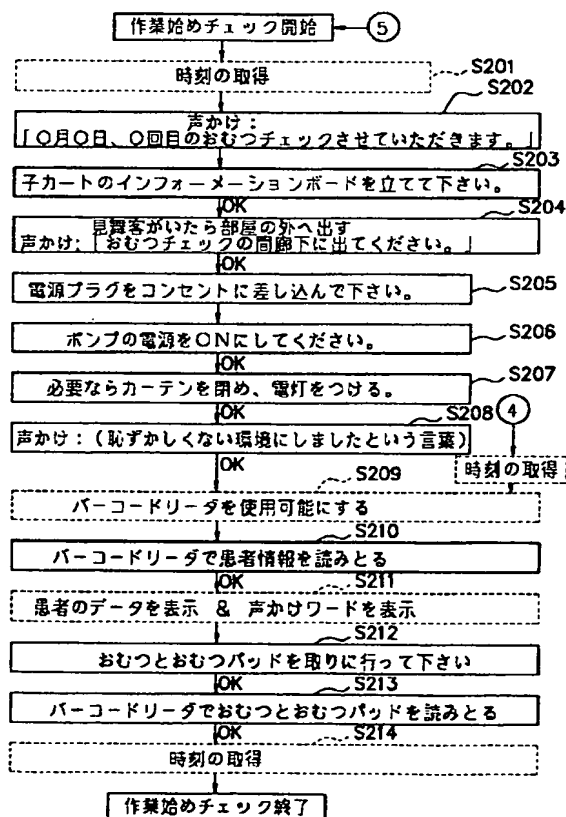 作業始めチェック開始
5
時刻の取得
S201
S202
声かけ：
「〇月〇日、〇回目のおむつチェックさせていただきます。」
S203
子カートのインフォーメーションボードを立てて下さい。
OK
S204
見舞客がいたら部屋の外へ出す
声かけ:「おむつチェックの間廊下に出てください。」
OK
S205
電源プラグをコンセントに差し込んで下さい。
OK
S206
ポンプの電源をONにしてください。
OK
S207
必要ならカーテンを閉め、電灯をつける。
OK
S208
4
声かけ：(恥ずかしくない環境にしましたという言葉)
OK
時刻の取得
S209
バーコードリーダを使用可能にする
S210
バーコードリーダで患者情報を読みとる
OK
S211
患者のデータを表示 & 声かけワードを表示
S212
おむつとおむつパッドを取りに行って下さい
OK
S213
バーコードリーダでおむつとおむつパッドを読みとる
OK
S214
時刻の取得
作業始めチェック終了